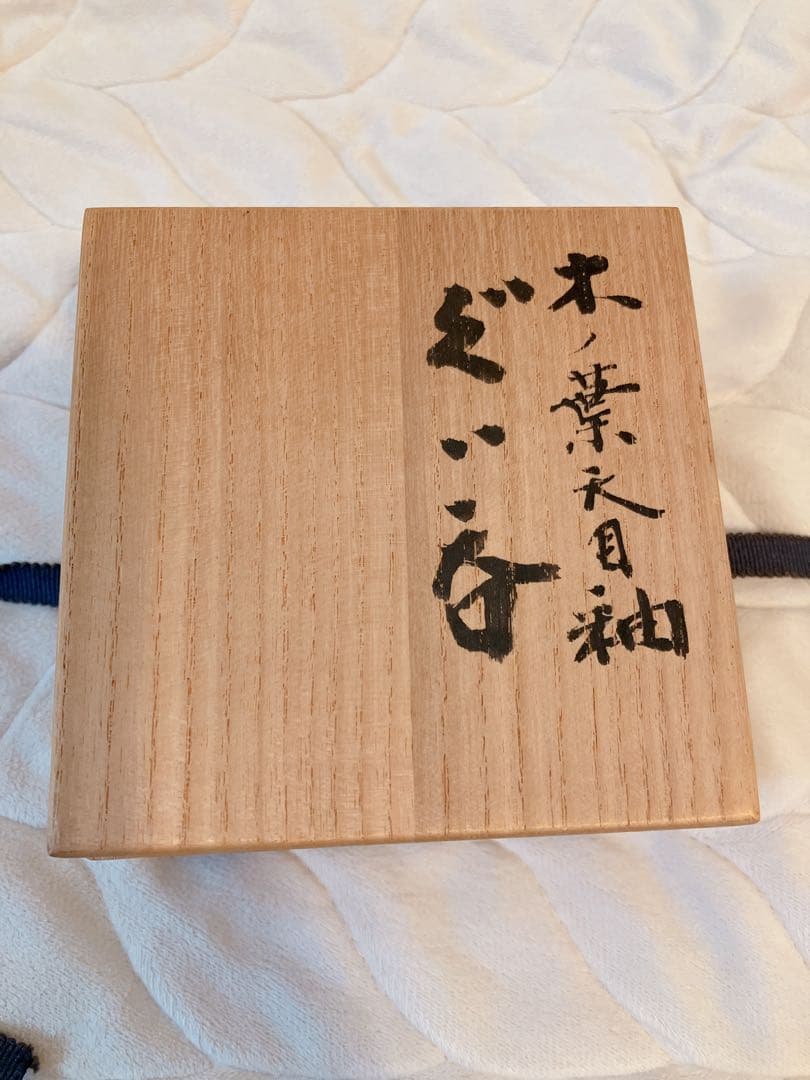 木ノ葉天目釉
ぐい呑